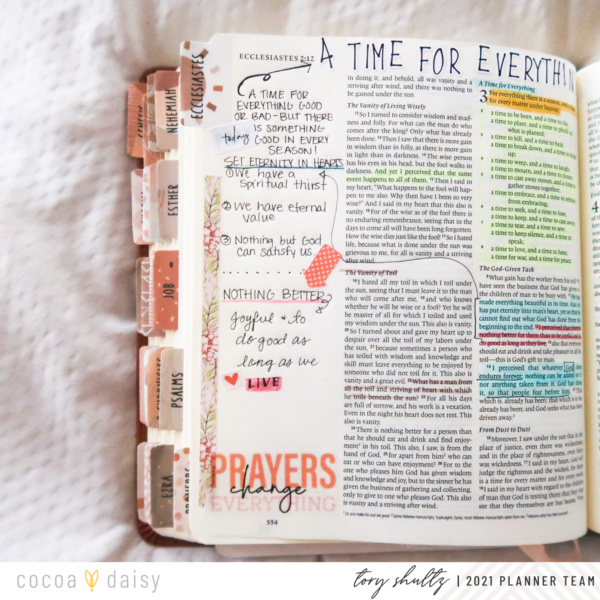 ECCLESIASTES 2:12
A TIME FOR EVERYTHIN
A TIME FOR
EVERYTHING GOOD
OR BAD - BUT THERE
IS SOMETHING
today GOOD IN EVERY
SEASON!
SET ETERNITY IN HEARTS
① We have a
Spiritual thirst
② We have eternal
value
③ Nothing but God
can satisfy us
NOTHING BETTER
joyful + to
do good as
long as we
LIVE
PRAYERS
change
EVERYTHING
554
ECCLESIASTES
NEHEMIAH
ESTHER
JOB
PSALMS
EZRA
PROVERBS
in doing it, and behold, all was vanity and a
striving after wind, and there was nothing to
be gained under the sun.
The Vanity of Living Wisely
12 So I turned to consider wisdom and mad-
ness and folly. For what can the man do who
comes after the king? Only what has already
been done. 13 Then I saw that there is more gain
in wisdom than in folly, as there is more gain
in light than in darkness. 14 The wise person
has his eyes in his head, but the fool walks in
darkness. And yet I perceived that the same
event happens to all of them. 15 Then I said in
my heart, "What happens to the fool will hap-
pen to me also. Why then have I been so very
wise?" And I said in my heart that this also is
vanity. 16 For of the wise as of the fool there is
no enduring remembrance, seeing that in the
days to come all will have been long forgotten.
How the wise dies just like the fool! 17 So I hated
life, because what is done under the sun was
grievous to me, for all is vanity and a striving
after wind.
The Vanity of Toil
18 I hated all my toil in which I toil under
the sun, seeing that I must leave it to the man
who will come after me, 19 and who knows
whether he will be wise or a fool? Yet he will
be master of all for which I toiled and used
my wisdom under the sun. This also is vanity.
20 So I turned about and gave my heart up to
despair over all the toil of my labors under
the sun, 21 because sometimes a person who
has toiled with wisdom and knowledge and
skill must leave everything to be enjoyed by
someone who did not toil for it. This also is
vanity and a great evil. 22 What has a man from
all the toil and striving of heart with which
he toils beneath the sun? 23 For all his days
are full of sorrow, and his work is a vexation.
Even in the night his heart does not rest. This
also is vanity.
24 There is nothing better for a person than
that he should eat and drink and find enjoy-
ment in his toil. This also, I saw, is from the
hand of God, 25 for apart from him who can
eat or who can have enjoyment? 26 For to the
one who pleases him God has given wisdom
and knowledge and joy, but to the sinner he has
given the business of gathering and collecting,
only to give to one who pleases God. This also
is vanity and a striving after wind.
A Time for Everything
3 For everything there is a season, and a time
for every matter under heaven:
2 a time to be born, and a time to die;
a time to plant, and a time to pluck up
what is planted;
3 a time to kill, and a time to heal;
a time to break down, and a time to build
up;
4 a time to weep, and a time to laugh;
a time to mourn, and a time to dance;
5 a time to cast away stones, and a time to
gather stones together;
a time to embrace, and a time to refrain
from embracing;
6 a time to seek, and a time to lose;
a time to keep, and a time to cast away;
7 a time to tear, and a time to sew;
a time to keep silence, and a time to
speak;
8 a time to love, and a time to hate;
a time for war, and a time for peace.
The God-Given Task
9 What gain has the worker from his toil? 10 I
have seen the business that God has given to
the children of man to be busy with. 11 He has
made everything beautiful in its time. Also, he
has put eternity into man's heart, yet so that he
cannot find out what God has done from the
beginning to the end. 12 I perceived that there is
nothing better for them than to be joyful and to
do good as long as they live; 13 also that everyone
should eat and drink and take pleasure in all his
toil—this is God's gift to man.
14 I perceived that whatever God does
endures forever; nothing can be added to it,
nor anything taken from it. God has done
it, so that people fear before him. 15 That
which is, already has been; that which is to be,
already has been; and God seeks what has been
driven away.
From Dust to Dust
16 Moreover, I saw under the sun that in the
place of justice, even there was wickedness,
and in the place of righteousness, even there
was wickedness. 17 I said in my heart, God will
judge the righteous and the wicked, for there
is a time for every matter and for every work.
18 I said in my heart with regard to the children
of man that God is testing them that they may
see that they themselves are but beasts.
cocoa daisy
tory shultz | 2021 PLANNER TEAM